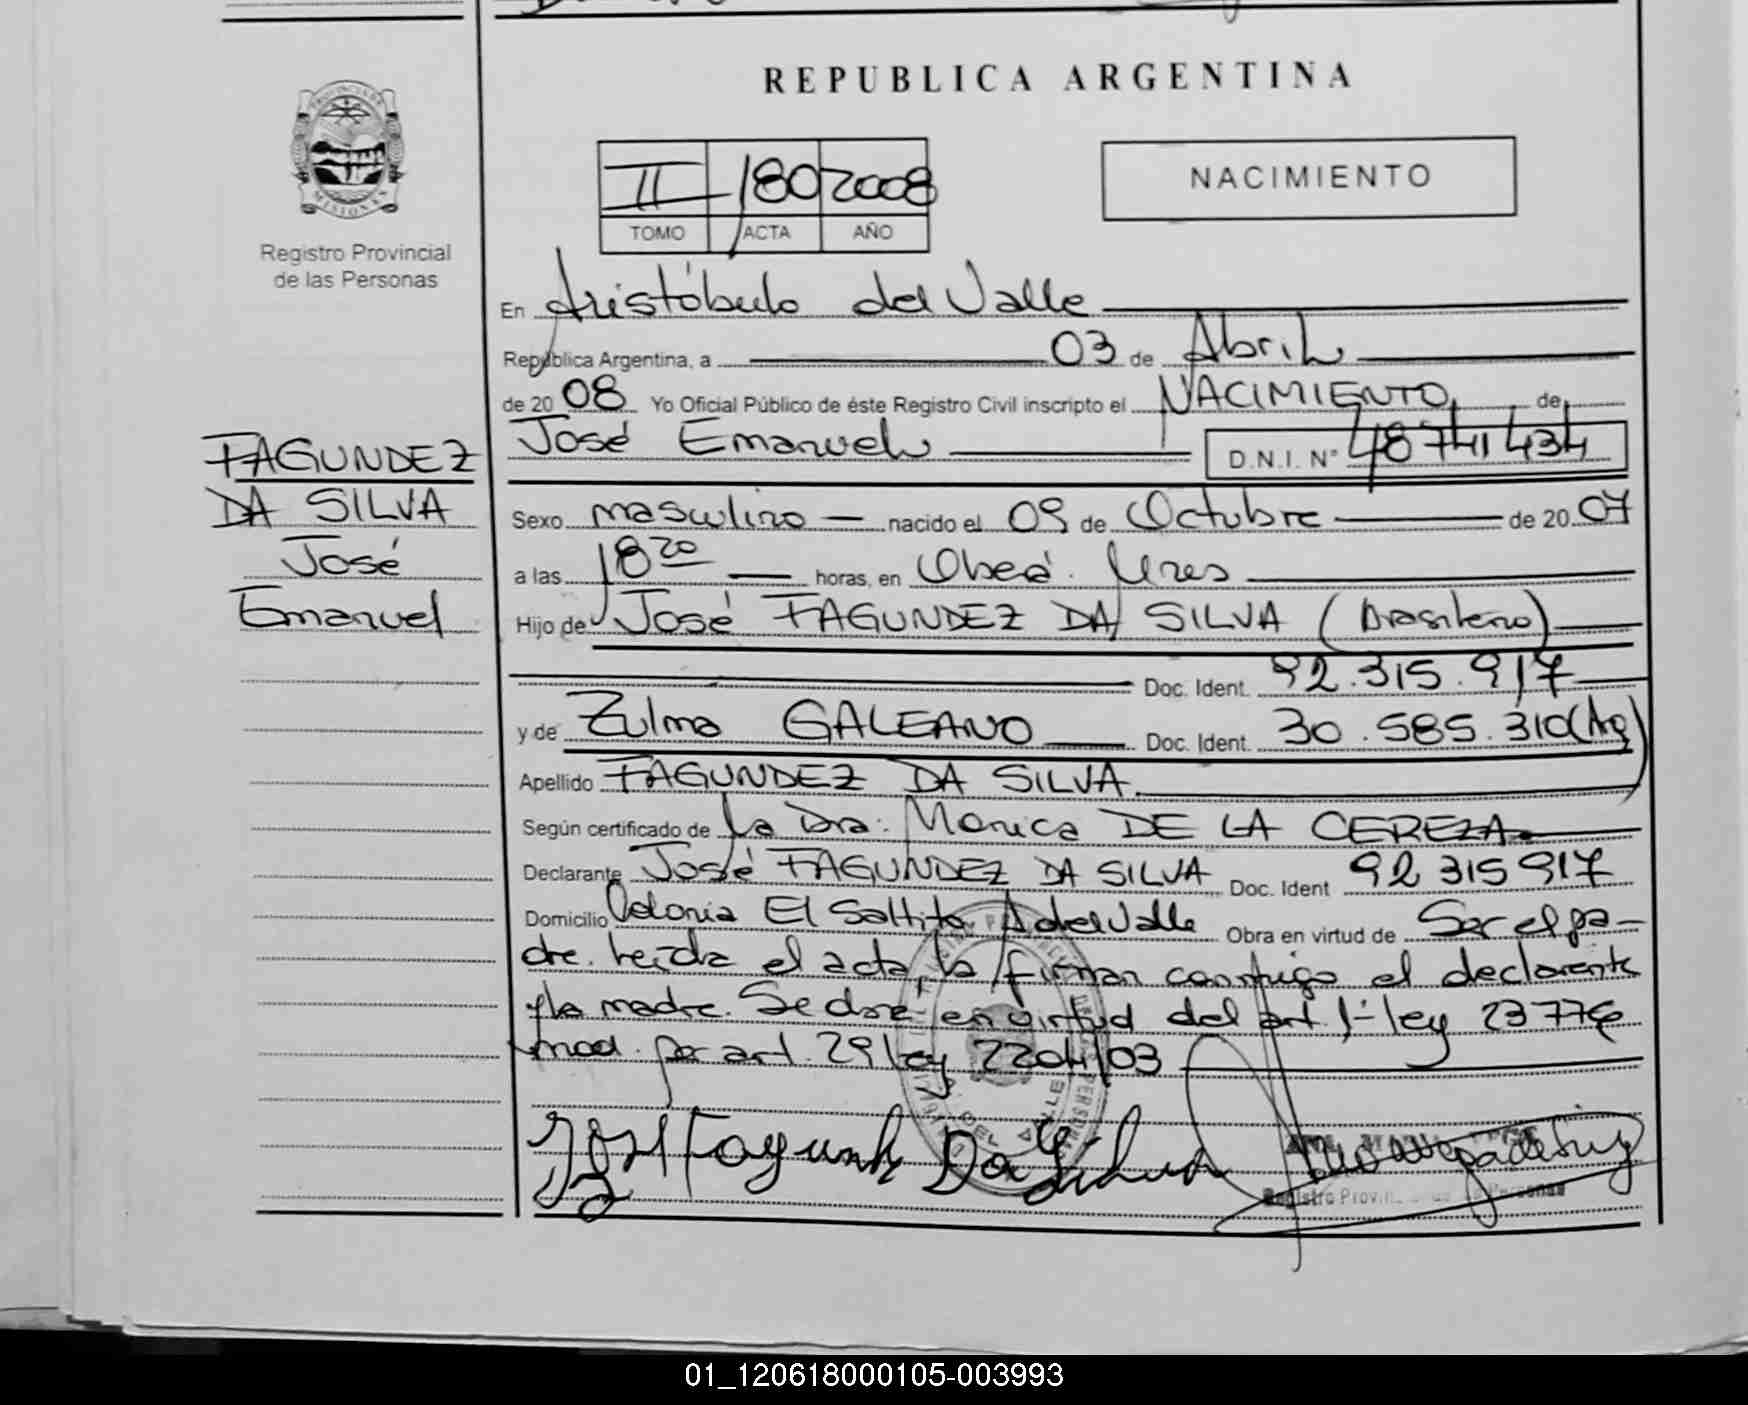 REPUBLICA ARGENTINA
PROVINCIA DE
MISIONES
Registro Provincial
de las Personas
II 180 2008
TOMO ACTA AÑO
NACIMIENTO
En Aristóbulo del Valle
República Argentina, a 03 de Abril
de 20 08 Yo Oficial Público de éste Registro Civil inscripto el NACIMIENTO de
José Emanuel D.N.I. N° 48741434
FAGUNDEZ
DA SILVA
José
Emanuel
Sexo masculino nacido el 09 de Octubre de 20 07
a las 18 20 horas, en Oberá. Mnes
Hijo de José FAGUNDEZ DA SILVA (brasileño)
Doc. Ident. 92.315.917
y de Zulma GALEANO Doc. Ident. 30.585.310 (Arg)
Apellido FAGUNDEZ DA SILVA
Según certificado de La Dra. Monica DE LA CEREZA
Declarante José FAGUNDEZ DA SILVA Doc. Ident 92 315 917
Domicilio Colonia El Saltito A del Valle Obra en virtud de Ser el pa-
dre. Leída el acta, la firman conmigo el declarante
y la madre. Se dora en virtud del art. 1- ley 23776
mod. por art. 29 ley 22 04/03
José Fagundez Da Silva
DEL VALLE
Registro Provin Personas
01_120618000105-003993